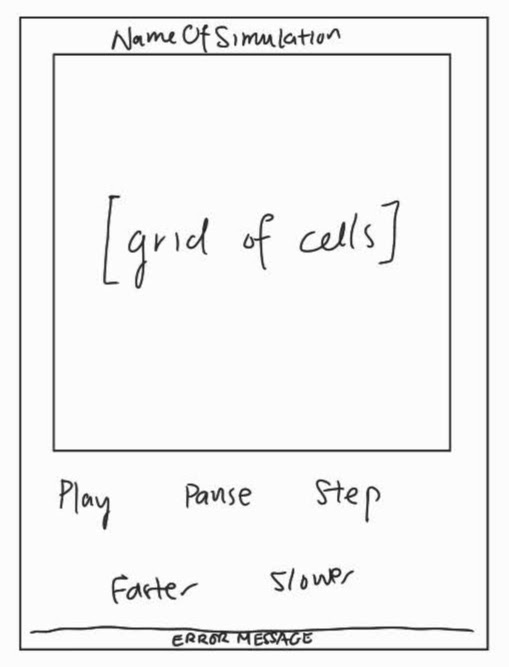 Name Of Simulation
[grid of cells]
Play Pause Step
Faster Slower
ERROR MESSAGE